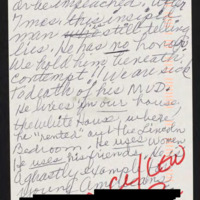 or be impeached, after
mess, this insipid
man still telling
lies. He has no honor
We hold him beneath
contempt. We are sick
to death of his MUD.
He lives in our house
the White House, where
he "rented" out the Lincoln
Bedroom. He uses women
He uses his friends
Ghastly example
young Americans